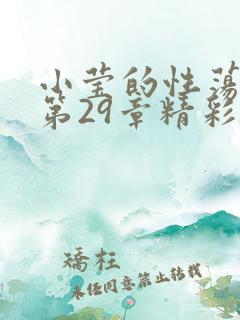 小莹的性荡
第29章精彩
矫枉
未经同意禁止转载